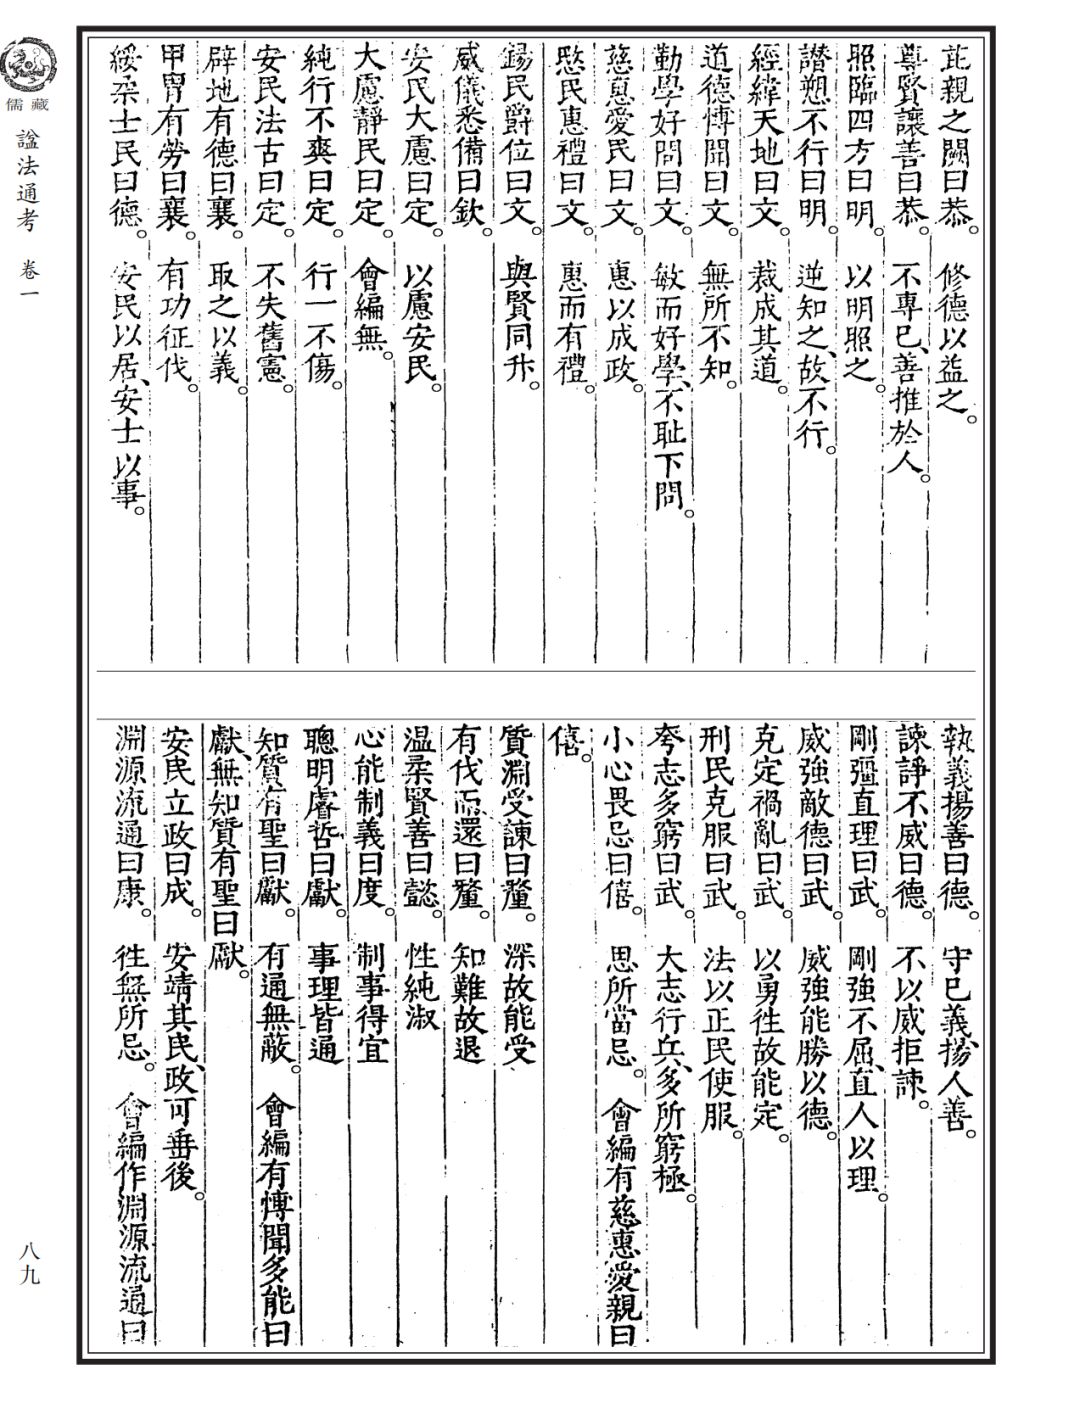 芘親之闕曰恭。修德以益之。
尊賢讓善曰恭。不專已、善推於人。
照臨四方曰明。以明照之。
譖愬不行曰明。逆知之、故不行。
經緯天地曰文。裁成其道。
道德博聞曰文。無所不知。
勤學好問曰文。敏而好學、不耻下問。
慈惠愛民曰文。惠以成政。
愍民惠禮曰文。惠而有禮。
錫民爵位曰文。與賢同升。
威儀悉備曰欽。
安民大慮曰定。以慮安民。
大慮靜民曰定。會編無。
純行不爽曰定。行一不傷。
安民法古曰定。不失舊憲。
辟地有德曰襄。取之以義。
甲冑有勞曰襄。有功征伐。
綏柔士民曰德。安民以居、安士以事。
執義揚善曰德。守已義、揚人善。
諫諍不威曰德。不以威拒諫。
剛彊直理曰武。剛強不屈、直人以理。
威強敵德曰武。威強能勝以德。
克定禍亂曰武。以勇徃故能定。
刑民克服曰武。法以正民使服。
夸志多窮曰武。大志行兵、多所窮極。
小心畏忌曰僖。思所當忌。會編有慈惠愛親曰
僖。
質淵受諫曰釐。深故能受
有伐而還曰釐。知難故退
温柔賢善曰懿。性純淑
心能制義曰度。制事得宜
聰明睿哲曰獻。事理皆通
知質有聖曰獻。有通無蔽。會編有博聞多能曰
獻、無知質有聖曰獻。
安民立政曰成。安靖其民、政可垂後。
淵源流通曰康。徃無所忌。會編作淵源流通曰
儒藏
諡法通考 卷一
八九